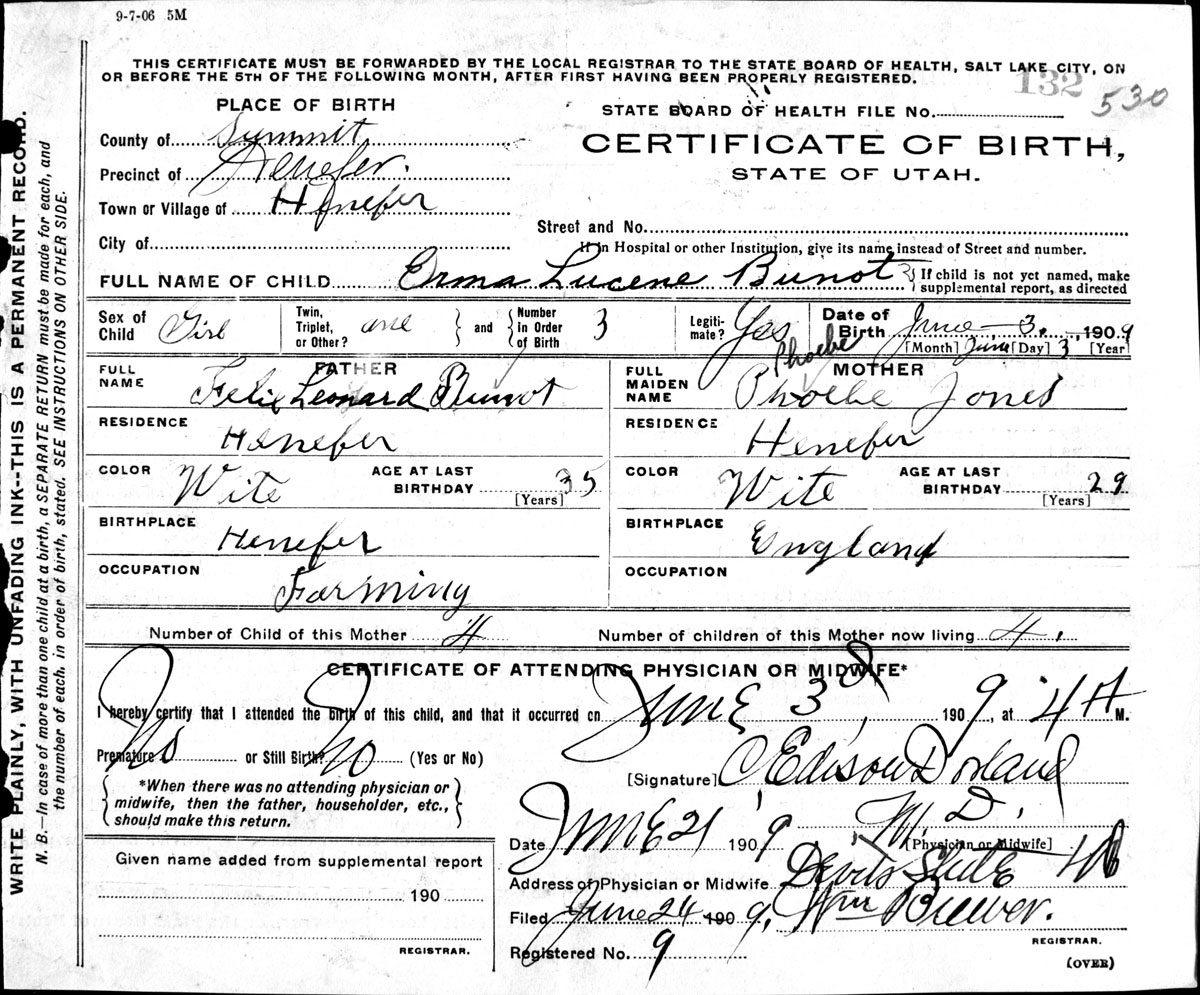 9-7-06 5M
THIS CERTIFICATE MUST BE FORWARDED BY THE LOCAL REGISTRAR TO THE STATE BOARD OF HEALTH, SALT LAKE CITY, ON
OR BEFORE THE 5TH OF THE FOLLOWING MONTH, AFTER FIRST HAVING BEEN PROPERLY REGISTERED.
132 530
PLACE OF BIRTH
STATE BOARD OF HEALTH FILE No.
County of Summit
CERTIFICATE OF BIRTH,
Precinct of Henefer.
STATE OF UTAH.
Town or Village of Henefer
Street and No.
City of
If in Hospital or other Institution, give its name instead of Street and number.
FULL NAME OF CHILD Erma Lucene Bunot
If child is not yet named, make
supplemental report, as directed
Sex of Child Girl
Twin, Triplet, or Other? one
and Number in Order of Birth 3
Legiti-mate? Yes
Date of Birth June 3. , 1909
[Month] June [Day] 3 [Year]
FATHER
FULL NAME Felix Leonard Bunot
RESIDENCE Henefer
COLOR Wite AGE AT LAST BIRTHDAY 35 [Years]
BIRTHPLACE Henefer
OCCUPATION Farming
MOTHER
Phoebe
FULL MAIDEN NAME Phoebe Jones
RESIDENCE Henefer
COLOR Wite AGE AT LAST BIRTHDAY 29 [Years]
BIRTHPLACE England
OCCUPATION
Number of Child of this Mother 4 Number of children of this Mother now living 4
CERTIFICATE OF ATTENDING PHYSICIAN OR MIDWIFE*
I hereby certify that I attended the birth of this child, and that it occurred on June 3d, 1909, at 4 A M.
Premature No or Still Birth? No (Yes or No)
[Signature] C Edison Dorland
*When there was no attending physician or
midwife, then the father, householder, etc.,
should make this return.
M. D.
Date June 21 1909 [Physician or Midwife]
Given name added from supplemental report
190
REGISTRAR.
Address of Physician or Midwife Devils Slide
Filed June 24 1909, Wm Brewer.
REGISTRAR.
Registered No. 9
(OVER)
WRITE PLAINLY, WITH UNFADING INK--THIS IS A PERMANENT RECORD.
N. B.—In case of more than one child at a birth, a SEPARATE RETURN must be made for each, and
the number of each, in order of birth, stated. SEE INSTRUCTIONS ON OTHER SIDE.